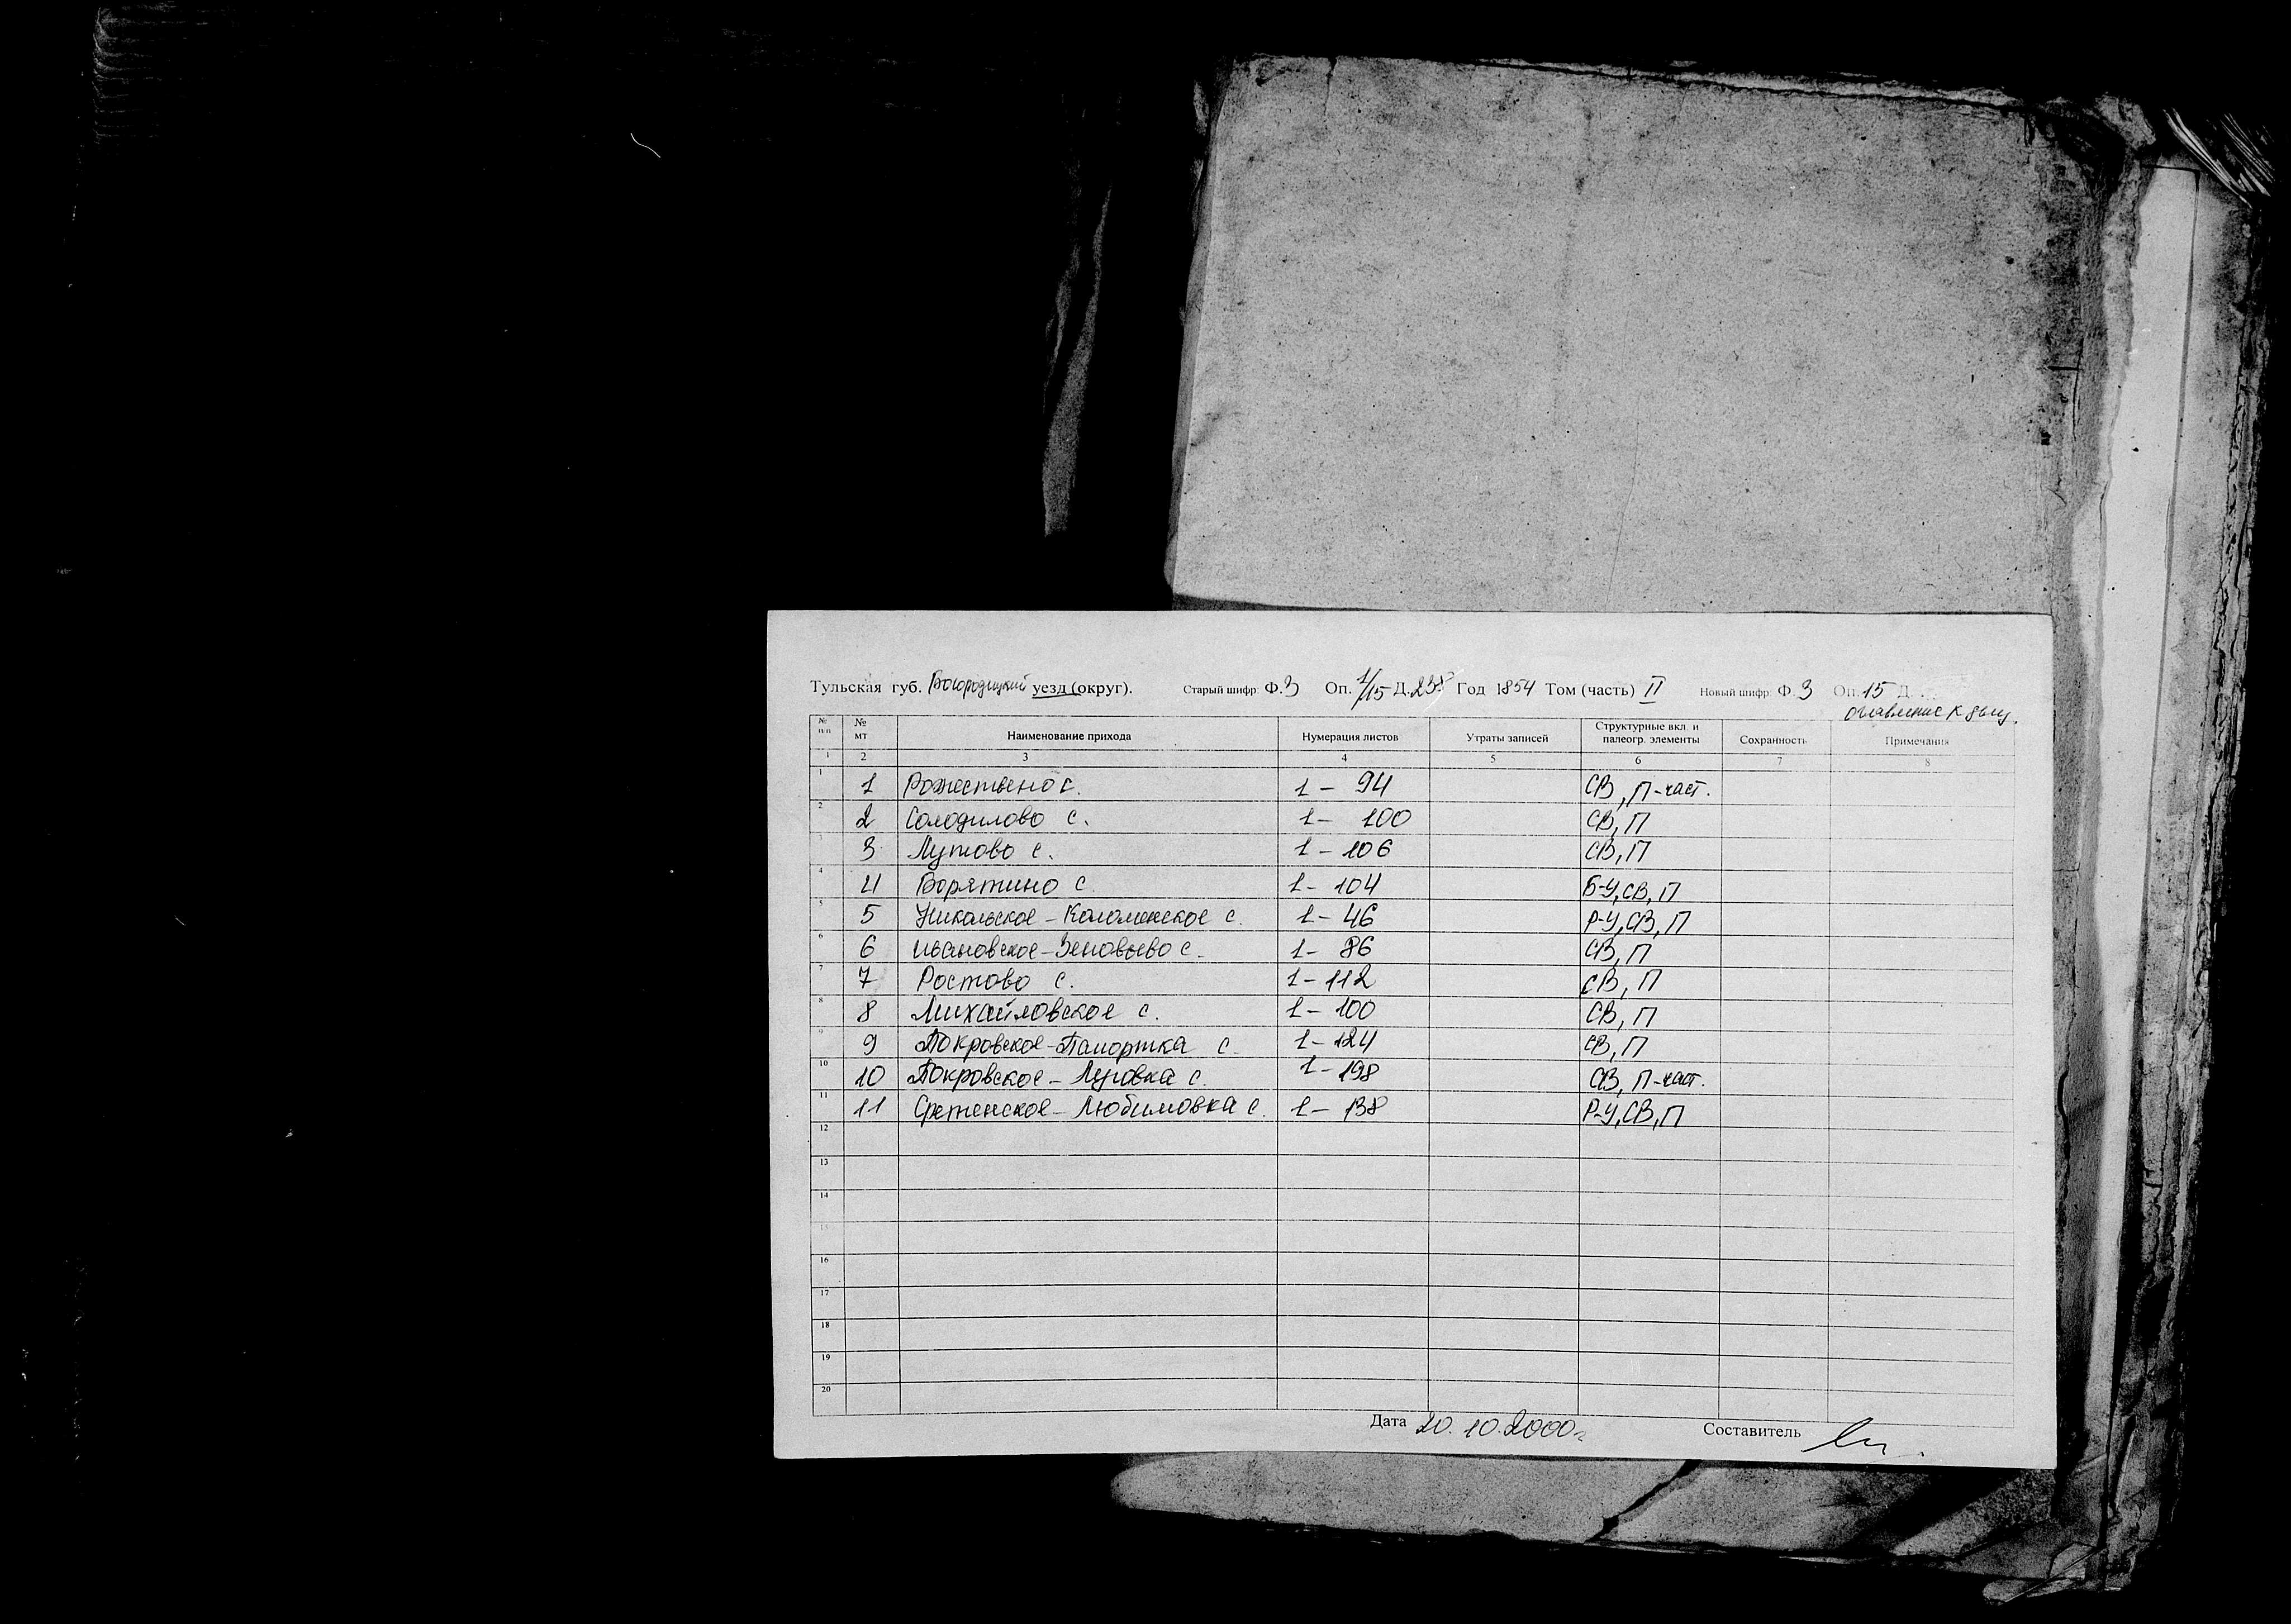 Тульская губ. Богородицкий уезд (округ). Старый шифр: Ф. 3 Оп. 1/15 Д. 238 Год 1854 Том (часть) II Новый шифр: Ф. 3 Оп. 15 Д.
оглавление к делу.
№ п/п № мт Наименование прихода Нумерация листов Утраты записей Структурные вкл. и палеогр. элементы Сохранность Примечания
1 2 3 4 5 6 7 8
1 1 Рожествено с. 1 – 94 СВ, П-част.
2 2 Солодилово с. 1 – 100 СВ, П
3 3 Лутово с. 1 – 106 СВ, П
4 4 Ворятино с. 1 – 104 Б-У, СВ, П
5 5 Никольское – Коломенское с. 1 – 46 Р-У, СВ, П
6 6 Ивановское – Зеновьево с. 1 – 86 СВ, П
7 7 Ростово с. 1 – 112 СВ, П
8 8 Михайловское с. 1 – 100 СВ, П
9 9 Покровское – Папортка с. 1 – 124 СВ, П
10 10 Покровское – Луговка с. 1 – 198 СВ, П-част.
11 11 Сретенское – Любимовка с. 1 – 138 Р-У, СВ, П
12
13
14
15
16
17
18
19
20
Дата 20.10.2000г. Составитель